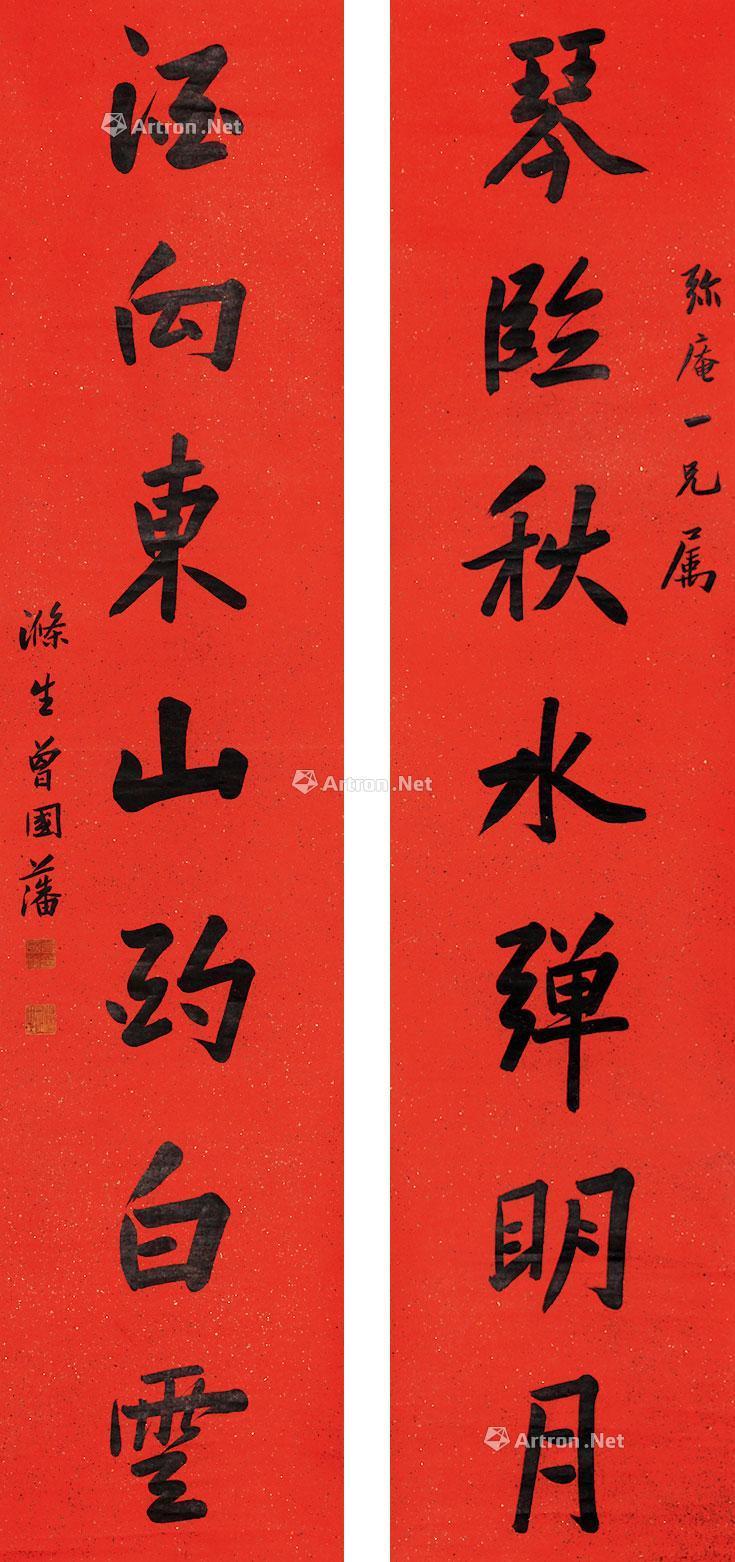 弥庵一兄属
琴臨秋水彈明月
酒向東山酌白雲
滌生曾國藩
Artron.Net
Artron.Net
Artron.Net